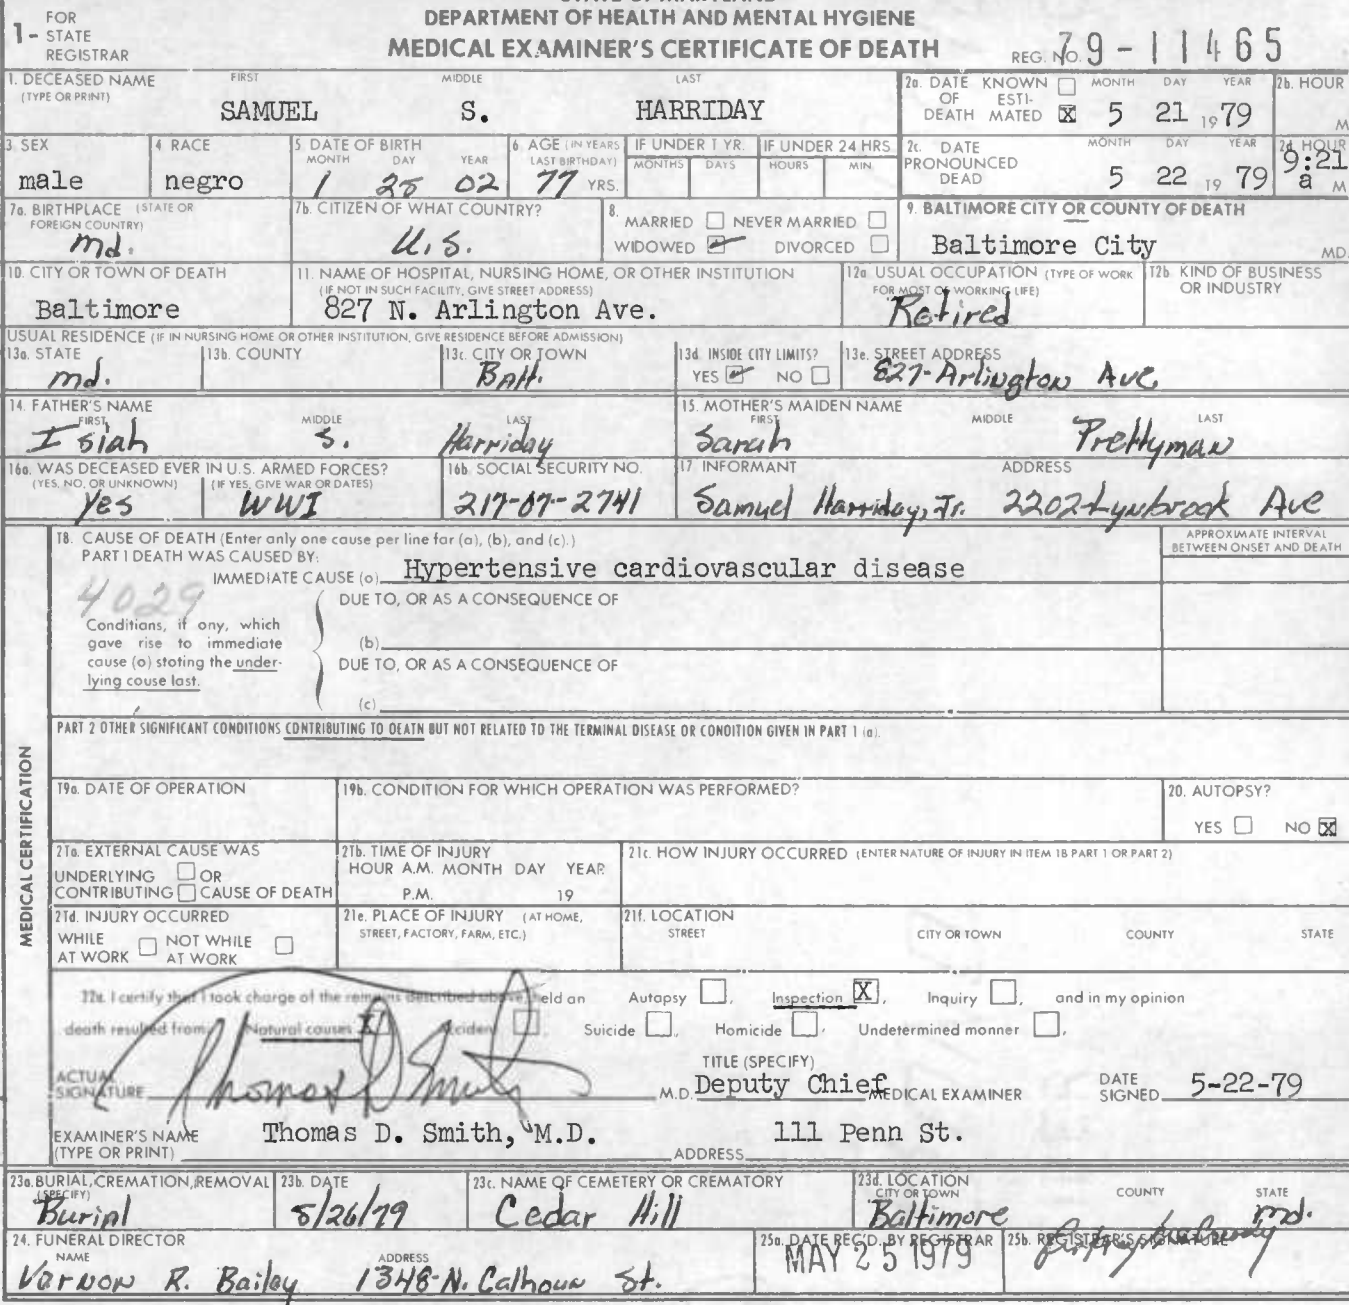 1 - FOR STATE REGISTRAR
DEPARTMENT OF HEALTH AND MENTAL HYGIENE
MEDICAL EXAMINER'S CERTIFICATE OF DEATH
REG. NO. 79-11465
1. DECEASED NAME (TYPE OR PRINT) FIRST MIDDLE LAST
SAMUEL S. HARRIDAY
2a. DATE OF DEATH KNOWN ☐ ESTIMATED ☒ MONTH DAY YEAR
5 21 1979
2b. HOUR M
3. SEX
male
4. RACE
negro
5. DATE OF BIRTH MONTH DAY YEAR
1 25 02
6. AGE (IN YEARS LAST BIRTHDAY)
77 YRS.
IF UNDER 1 YR. MONTHS DAYS
IF UNDER 24 HRS HOURS MIN.
2c. DATE PRONOUNCED DEAD MONTH DAY YEAR
5 22 1979
2d. HOUR
9:21 a M
7a. BIRTHPLACE (STATE OR FOREIGN COUNTRY)
Md.
7b. CITIZEN OF WHAT COUNTRY?
U.S.
8. MARRIED ☐ NEVER MARRIED ☐
WIDOWED ☑ DIVORCED ☐
9. BALTIMORE CITY OR COUNTY OF DEATH
Baltimore City MD.
10. CITY OR TOWN OF DEATH
Baltimore
11. NAME OF HOSPITAL, NURSING HOME, OR OTHER INSTITUTION
(IF NOT IN SUCH FACILITY, GIVE STREET ADDRESS)
827 N. Arlington Ave.
12a. USUAL OCCUPATION (TYPE OF WORK FOR MOST OF WORKING LIFE)
Retired
12b. KIND OF BUSINESS OR INDUSTRY
USUAL RESIDENCE (IF IN NURSING HOME OR OTHER INSTITUTION, GIVE RESIDENCE BEFORE ADMISSION)
13a. STATE
Md.
13b. COUNTY
13c. CITY OR TOWN
Balt.
13d. INSIDE CITY LIMITS?
YES ☑ NO ☐
13e. STREET ADDRESS
827-Arlington Ave
14. FATHER'S NAME FIRST MIDDLE LAST
Isiah S. Harriday
15. MOTHER'S MAIDEN NAME FIRST MIDDLE LAST
Sarah Prettyman
16a. WAS DECEASED EVER IN U.S. ARMED FORCES?
(YES, NO, OR UNKNOWN) (IF YES, GIVE WAR OR DATES)
Yes WWI
16b. SOCIAL SECURITY NO.
217-07-2741
17. INFORMANT ADDRESS
Samuel Harriday, Jr. 2202-Lynbrook Ave
MEDICAL CERTIFICATION
18. CAUSE OF DEATH (Enter only one cause per line for (a), (b), and (c).)
APPROXIMATE INTERVAL BETWEEN ONSET AND DEATH
PART 1 DEATH WAS CAUSED BY:
IMMEDIATE CAUSE (a) Hypertensive cardiovascular disease
4029
DUE TO, OR AS A CONSEQUENCE OF
Conditions, if any, which gave rise to immediate cause (a) stating the underlying cause last.
(b)
DUE TO, OR AS A CONSEQUENCE OF
(c)
PART 2 OTHER SIGNIFICANT CONDITIONS CONTRIBUTING TO DEATH BUT NOT RELATED TO THE TERMINAL DISEASE OR CONDITION GIVEN IN PART 1 (a).
19a. DATE OF OPERATION
19b. CONDITION FOR WHICH OPERATION WAS PERFORMED?
20. AUTOPSY?
YES ☐ NO ☒
21a. EXTERNAL CAUSE WAS
UNDERLYING ☐ OR
CONTRIBUTING ☐ CAUSE OF DEATH
21b. TIME OF INJURY
HOUR A.M. MONTH DAY YEAR
P.M. 19
21c. HOW INJURY OCCURRED (ENTER NATURE OF INJURY IN ITEM 18 PART 1 OR PART 2)
21d. INJURY OCCURRED
WHILE AT WORK ☐ NOT WHILE AT WORK ☐
21e. PLACE OF INJURY (AT HOME, STREET, FACTORY, FARM, ETC.)
21f. LOCATION
STREET CITY OR TOWN COUNTY STATE
22a. I certify that I took charge of the remains described above, held an Autopsy ☐, Inspection ☒, Inquiry ☐, and in my opinion
death resulted from: Natural causes ☒ Accident ☐, Suicide ☐, Homicide ☐, Undetermined manner ☐,
ACTUAL SIGNATURE Thomas D. Smith M.D.
TITLE (SPECIFY)
Deputy Chief MEDICAL EXAMINER
DATE SIGNED 5-22-79
EXAMINER'S NAME (TYPE OR PRINT) Thomas D. Smith, M.D.
ADDRESS 111 Penn St.
23a. BURIAL, CREMATION, REMOVAL (SPECIFY)
Burial
23b. DATE
5/26/79
23c. NAME OF CEMETERY OR CREMATORY
Cedar Hill
23d. LOCATION
CITY OR TOWN COUNTY STATE
Baltimore Md.
24. FUNERAL DIRECTOR
NAME ADDRESS
Varnon R. Bailey 1348-N. Calhoun St.
25a. DATE REC'D. BY REGISTRAR
MAY 25 1979
25b. REGISTRAR'S SIGNATURE